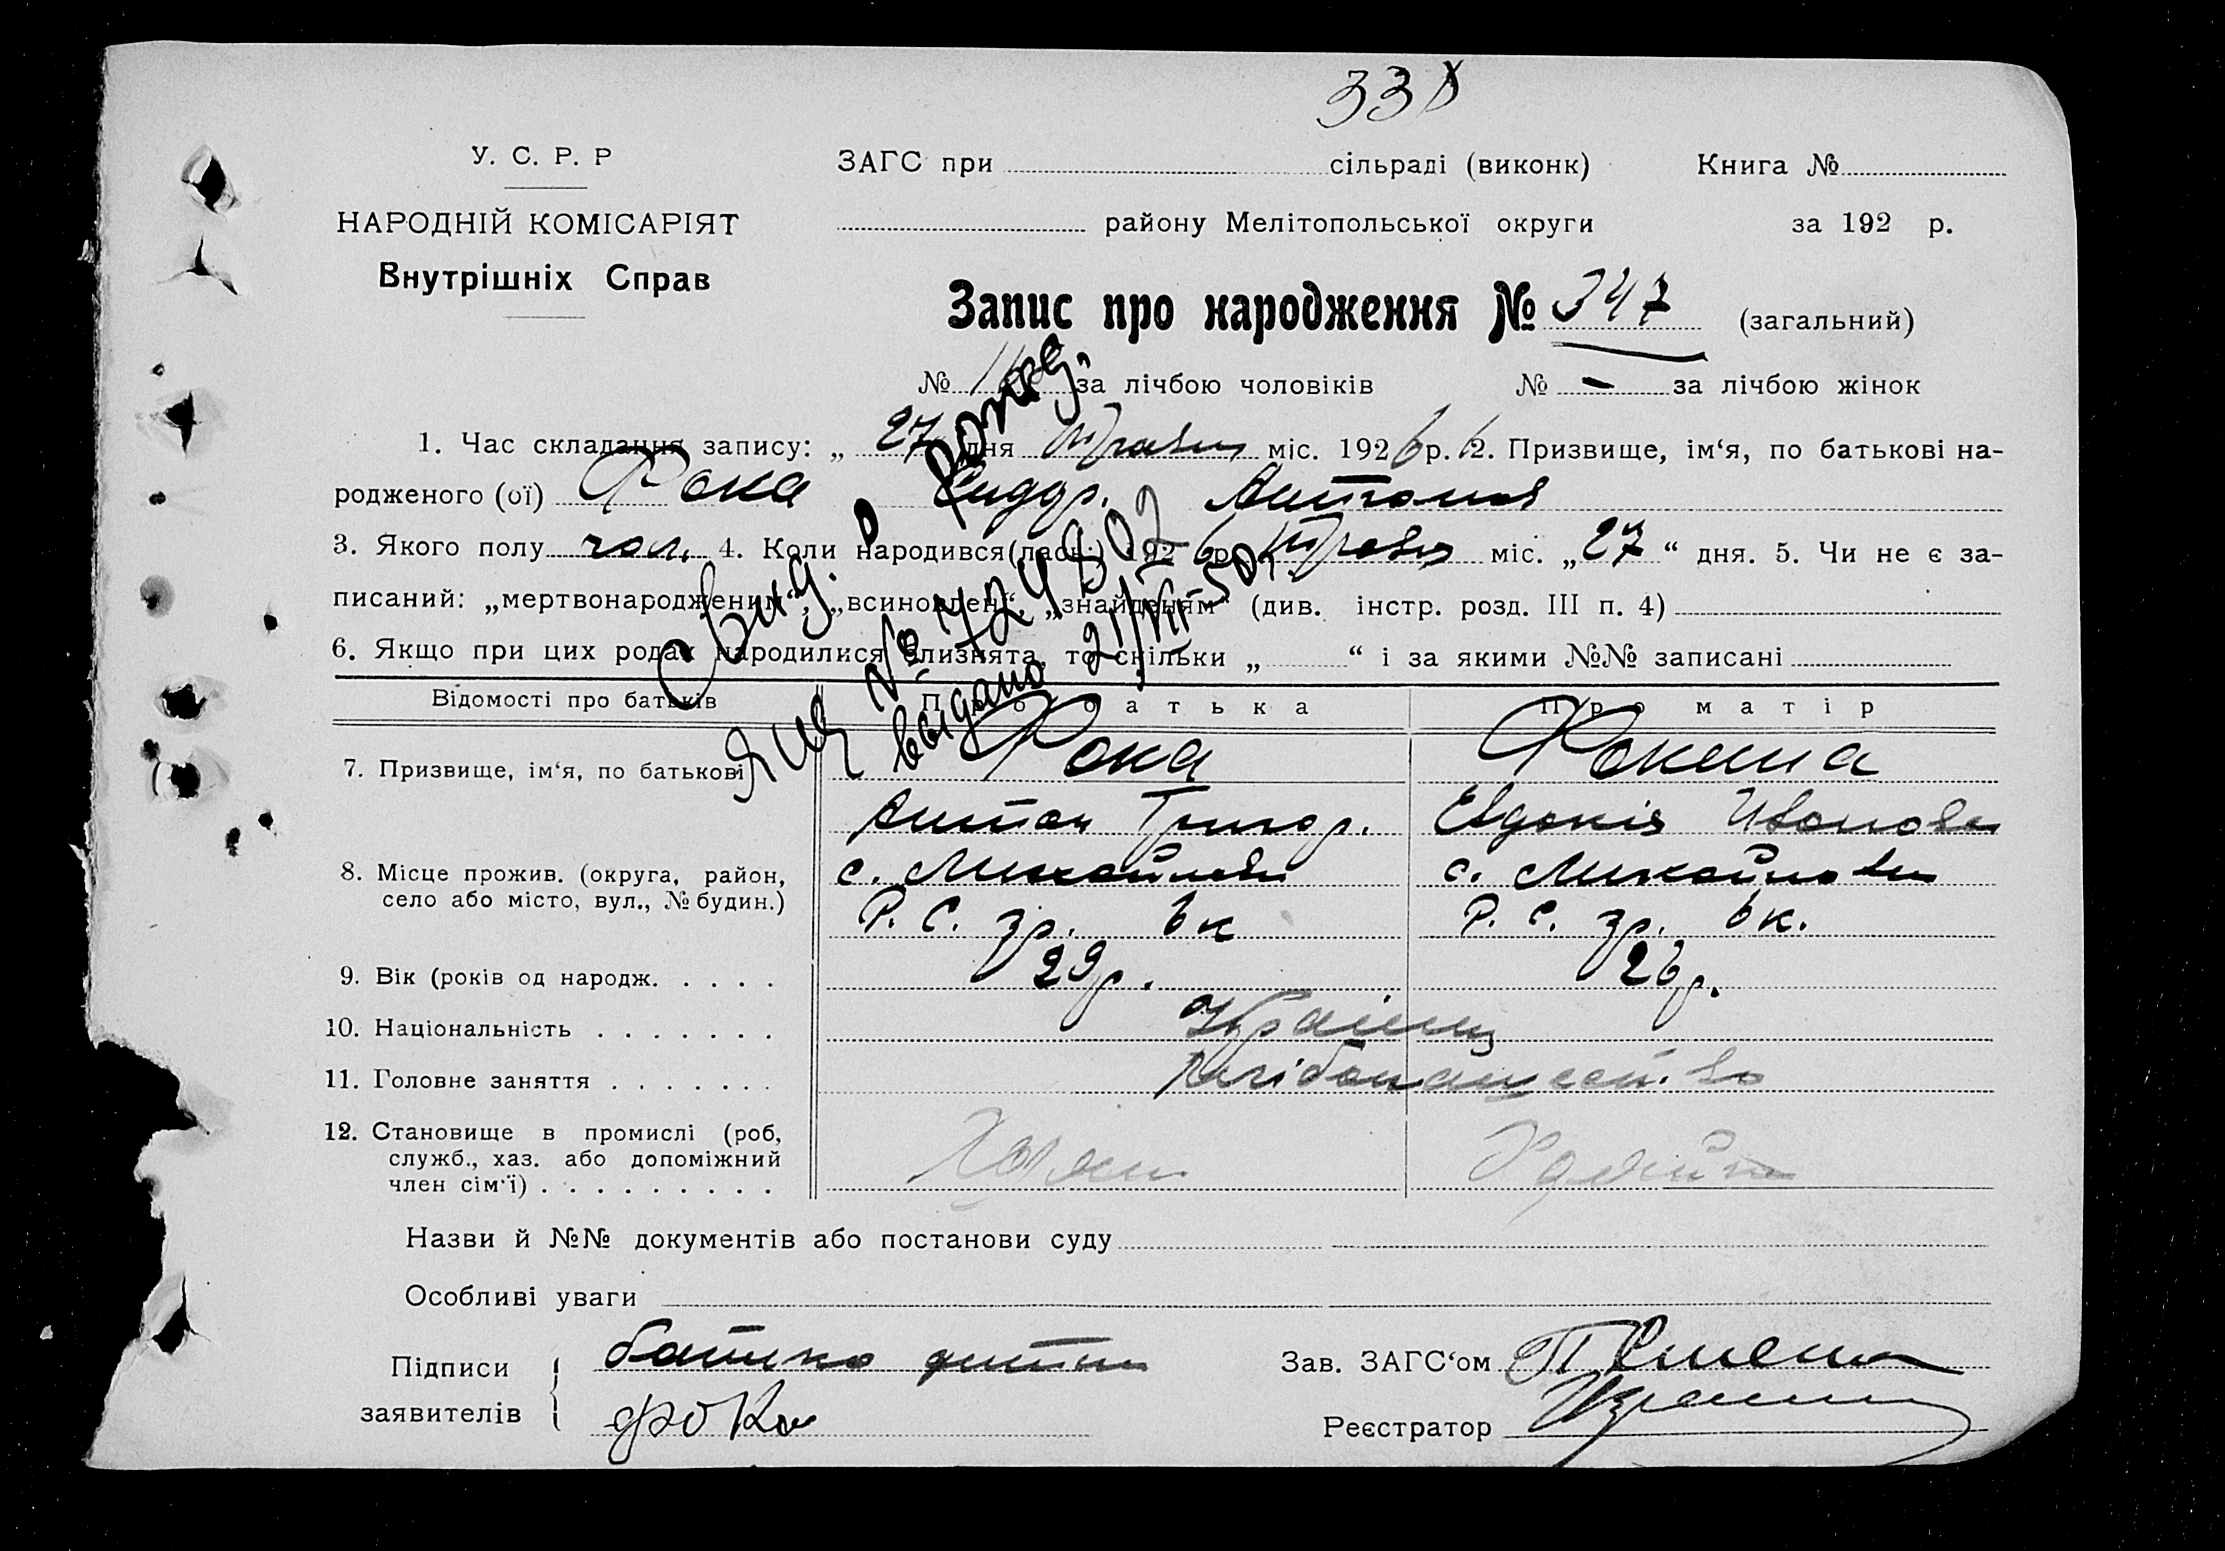 338
У. С. Р. Р
НАРОДНІЙ КОМІСАРІЯТ
Внутрішніх Справ
ЗАГС при сільраді (виконк) Книга №
району Мелітопольської округи за 192 р.
Запис про народження № 347 (загальний)
№ за лічбою чоловіків № – за лічбою жінок
1. Час складання запису: „ 27 дня травня міс. 1926 р. 2. Призвище, ім‘я, по батькові на-
родженого (ої) Фока Антонов
3. Якого полу чол. 4. Коли народився (лась) 1926 р. травня міс. „27“ дня. 5. Чи не є за-
писаний: „мертвонародженим“, „всиновлен“, „знайденям“ (див. інстр. розд. III п. 4)
6. Якщо при цих родах народилися близнята, то скільки „ “ і за якими №№ записані
Свид. о рожд.
ЯЩ № 724802
выдано 21/VII 50г.
Відомості про батьків Про батька Про матір
7. Призвище, ім‘я, по батькові Фока Фокина
Антон Григор. Евдокія Ивановна
8. Місце прожив. (округа, район, с. Михайлівки с. Михайловки
село або місто, вул., № будин.) Р. С. зр. вк Р. С. зр. вк.
9. Вік (років од народж. 29р. 26р.
10. Національність Українці
11. Головне заняття хлібопашество
12. Становище в промислі (роб, Хозяин
служб., хаз. або допоміжний
член сім‘ї)
Назви й №№ документів або постанови суду
Особливі уваги
Підписи батько дитини
заявителів Фока
Зав. ЗАГС‘ом
Реєстратор